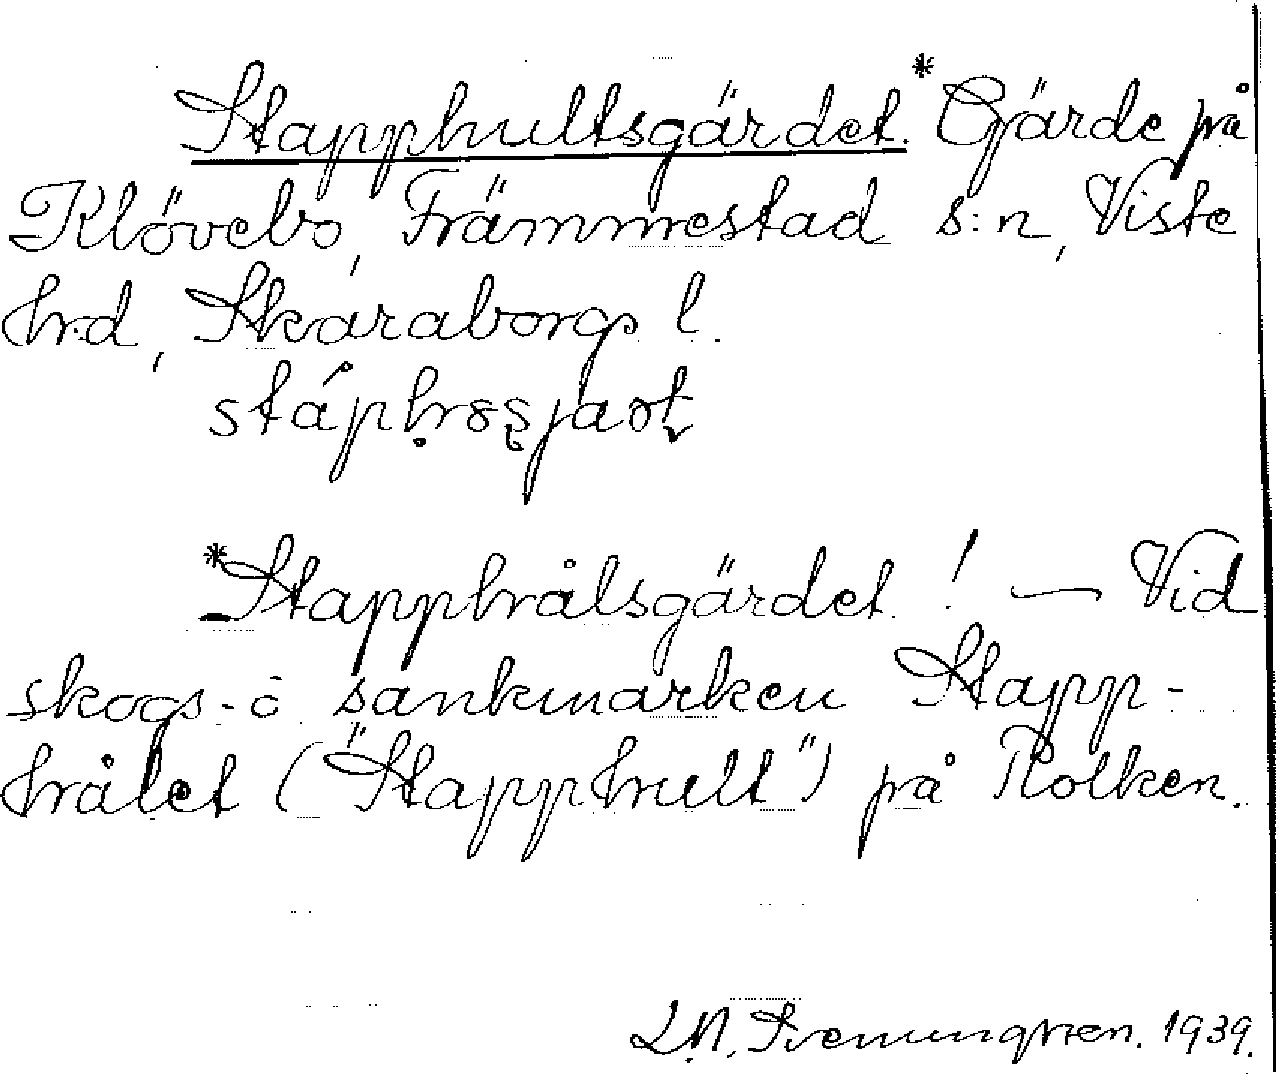 Stapphultsgärdet.* Gärde på
Klövebo, Främmestad s:n, Viste
hrd, Skaraborgs l.
*Stapphålsgärdet! — Vid
skogs- o sankmarken Stapp-
hålet ("Stapphult") på Rolken.
L.N. Svenungsson. 1939.